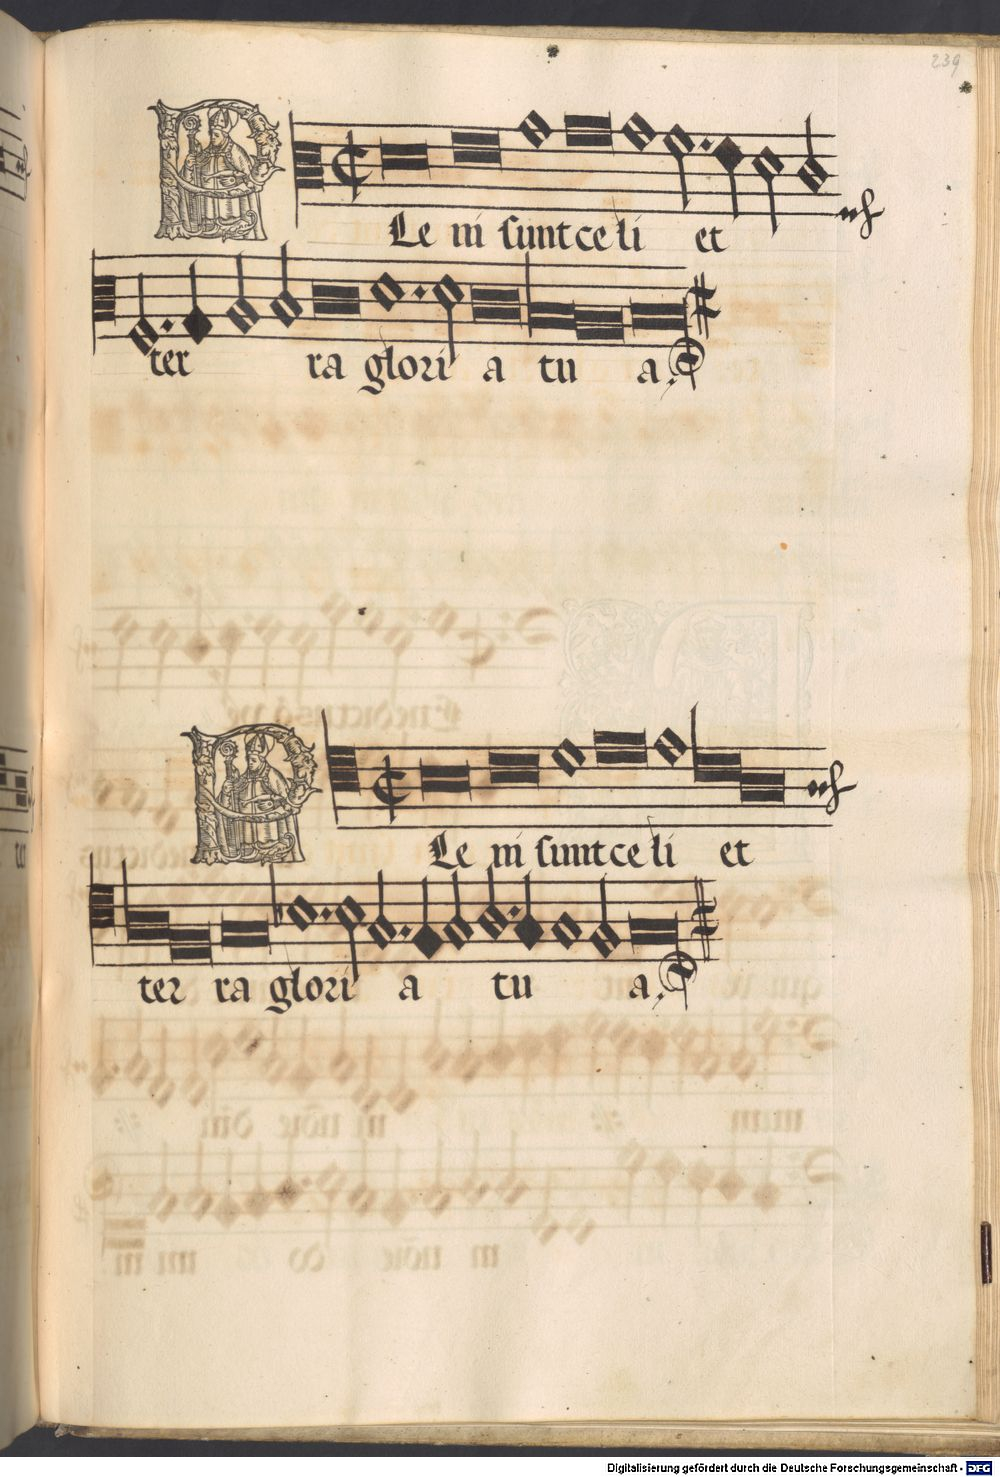 239
PLe ni sunt ce li et
ter ra glori a tu a.
PLe ni sunt ce li et
ter ra glori a tu a.
Digitalisierung gefördert durch die Deutsche Forschungsgemeinschaft - DFG